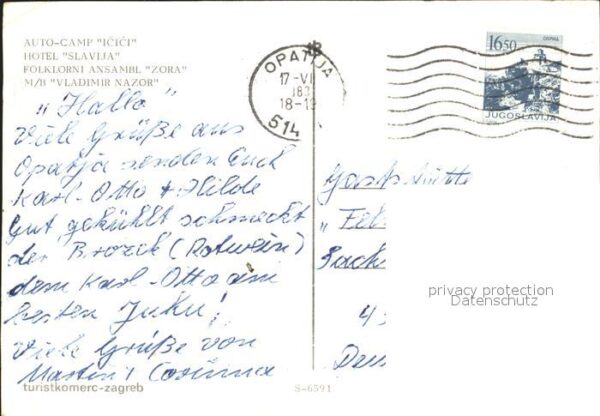 AUTO-CAMP "IČIĆI"
HOTEL "SLAVIJA"
FOLKLORNI ANSAMBL "ZORA"
M/B "VLADIMIR NAZOR"
"Hallo"
Viele Grüße aus
Opatja senden Euch
Karl-Otto + Hilde
Gut gekühlt schmeckt
der (Rotwein)
dem Karl-Otto am
besten Juhu!
Viele Grüße von
Martin
turistkomerc-zagreb
S-6591
OPATIJA
17-VI
83
18-19
514
16.50
JUGOSLAVIJA
privacy protection
Datenschutz